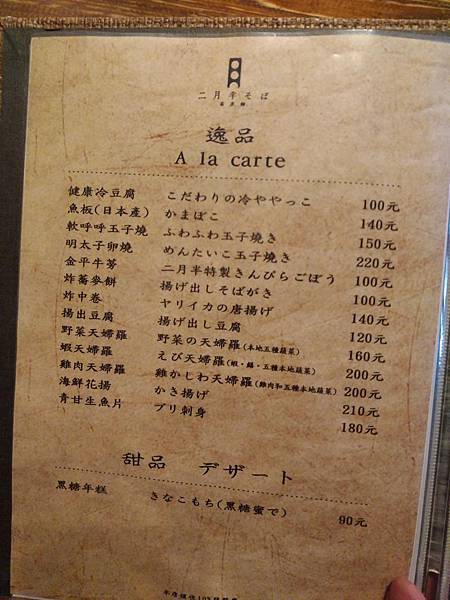 二月半そば
逸品
A la carte
健康冷豆腐 こだわりの冷ややっこ 100元
魚板(日本產) かまぼこ 140元
軟呼呼玉子燒 ふわふわ玉子焼き 150元
明太子卵燒 めんたいこ玉子焼き 220元
金平牛蒡 二月半特製きんぴらごぼう 100元
炸蕎麥餅 揚げ出しそばがき 100元
炸中卷 ヤリイカの唐揚げ 140元
揚出豆腐 揚げ出し豆腐 120元
野菜天婦羅 野菜の天婦羅(本地五種蔬菜) 160元
蝦天婦羅 えび天婦羅(蝦·五種本地蔬菜) 200元
雞肉天婦羅 雞かしわ天婦羅(雞肉和五種本地蔬菜) 200元
海鮮花揚 かき揚げ 210元
青甘生魚片 ブリ刺身 180元
甜品 デザート
黑糖年糕 きなこもち(黒糖蜜で) 90元